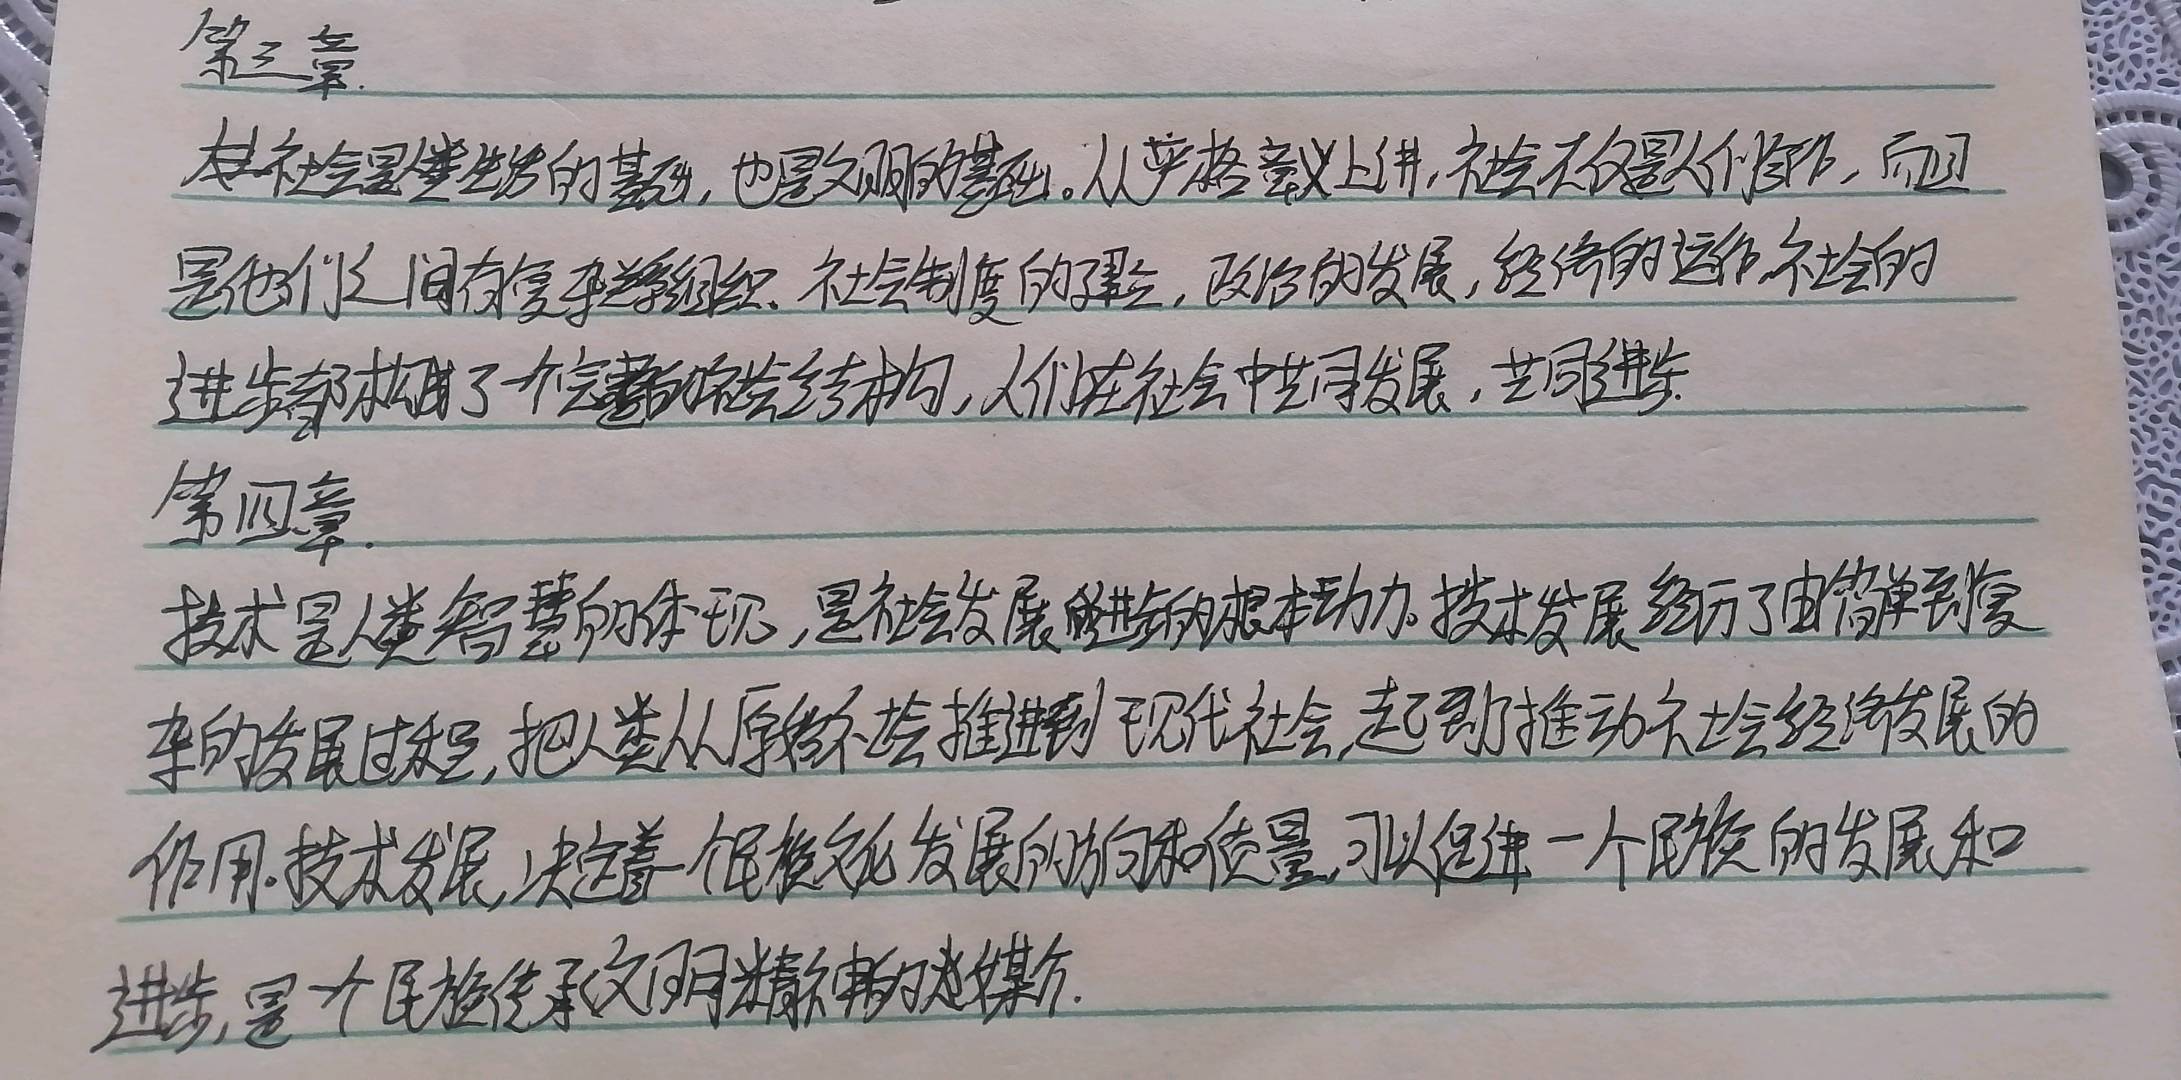 第三章.
社会是人类生活的基础，也是文明的基础。从严格意义上讲，社会不仅是人们合作，而且
是他们之间有复杂关系组织、社会制度的建立，政治的发展，经济的运作，社会的
进步都构成了一个完整的社会结构，人们在社会中共同发展，共同进步.
第四章.
技术是人类智慧的体现，是社会发展进步的根本动力。技术发展经历了由简单到复
杂的发展过程，把人类从原始社会推进到现代社会，起到了推动社会经济发展的
作用。技术发展，决定着一个民族文化发展的方向和质量，可以促进一个民族的发展和
进步，是一个民族传承文明精神的媒介.